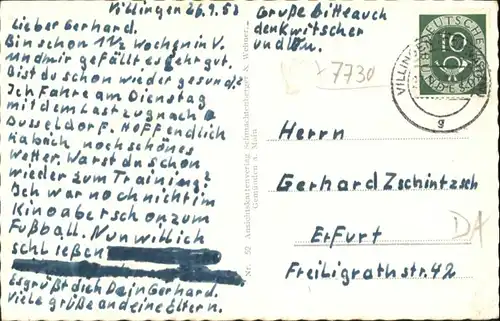 Villingen 26.9.53
Lieber Gerhard.
Bin schon 1 1/2 Wochen in V.
und mir gefällt es sehr gut.
Bist du schon wieder gesund?
Ich fahre am Dienstag
mit dem Lastzug nach
Düsseldorf. Hoffendlich
habich noch schönes
Wetter. Warst du schon
wieder zum Training?
Ich war noch nicht im
Kino aber schon zum
Fußball. Nun will ich
schließen
Es grüßt dich Dein Gerhard.
Viele grüße an deine Eltern.
Grüße Bitte auch
den Kwitscher
und
7730
Nr. 52 Ansichtskartenverlag Schmachtenberger & Wehner,
Gemünden A. Main
DEUTSCHE
BUNDESPOST
10
VILLINGEN
g
Herrn
Gerhard Zschintzsch
Erfurt
Freiligrathstr. 42
DA